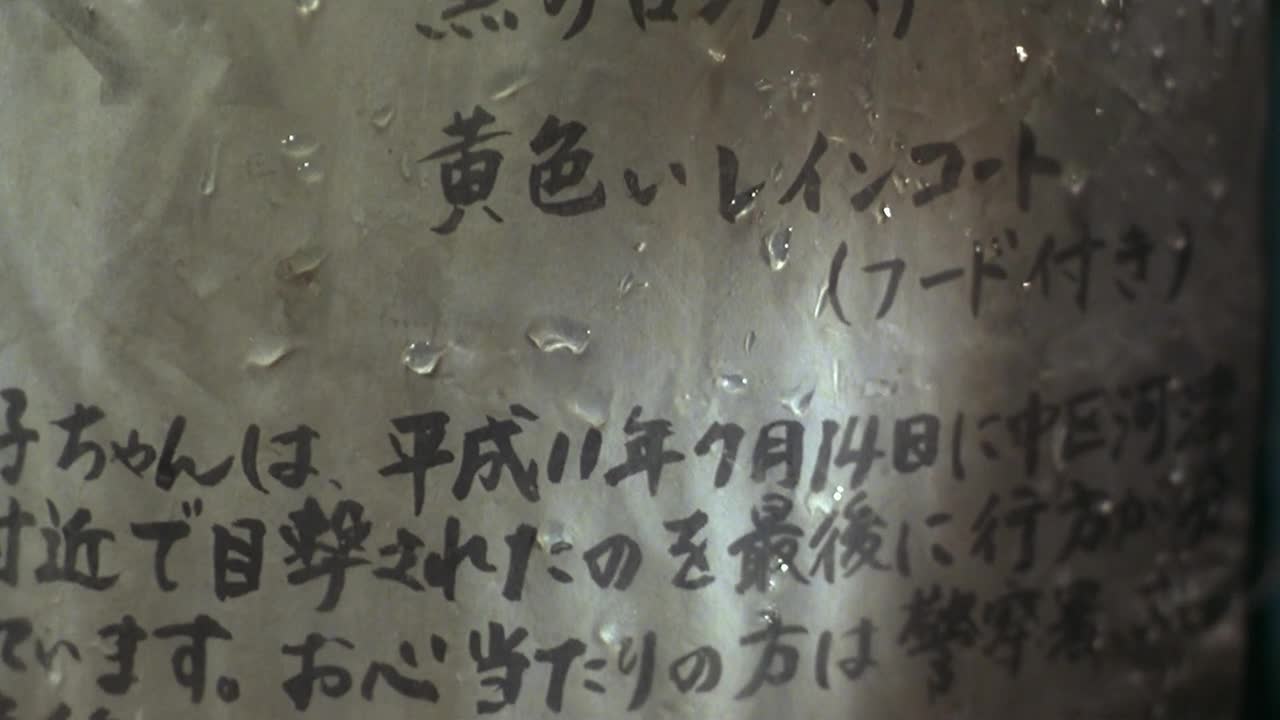 黄色いレインコート
(フード付き)
子ちゃんは、平成11年7月14日に中区河
付近で目撃されたのを最後に行方が
ています。お心当たりの方は警察署